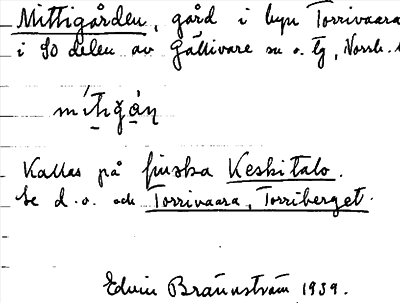 Mittigården, gård i byn Torrivaara
i SO delen av Gällivare sn o. tg, Norrb. l
mítigán
Kallas på finska Keskitalo.
Se d. o. och Torrivaara, Torriberget.
Edvin Brännström 1939.